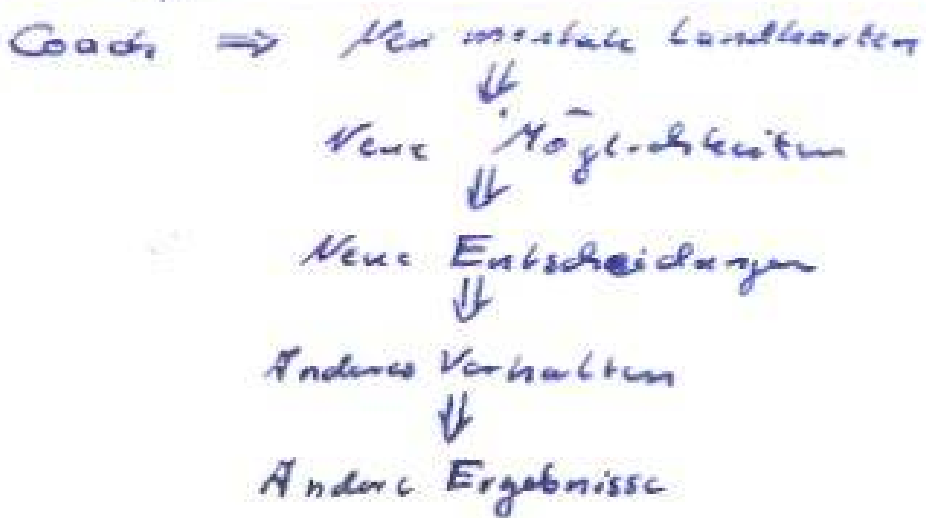 Coach ⇒ Neu mentale Landkarten
⇓
Neue Möglichkeiten
⇓
Neue Entscheidungen
⇓
Anderes Verhalten
⇓
Andere Ergebnisse